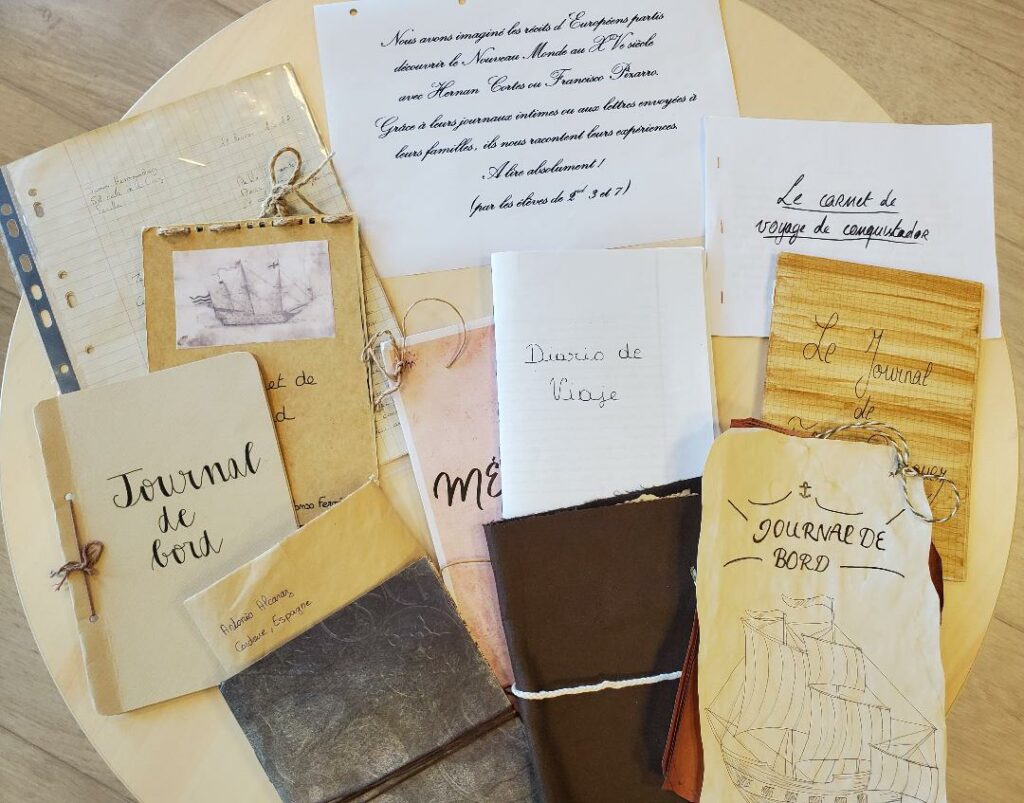 Nous avons imaginé les récits d'Européens partis
découvrir le Nouveau Monde au XVe siècle
avec Hernan Cortes ou Francisco Pizarro.
Grâce à leurs journaux intimes ou aux lettres envoyées à
leurs familles, ils nous racontent leurs expériences.
A lire absolument !
(par les élèves de 2nd 3 et 7)
Le carnet de
voyage de conquistador
Diario de
Viaje
Le Journal
de
et de
d
Journal
de
bord
MÉ
JOURNAL DE
BORD
Antonio Alcaraz
Cordoue, Espagne